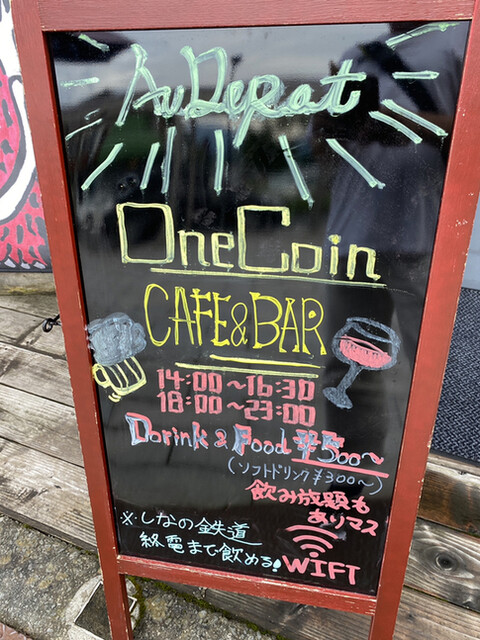 AuDepat
OneCoin
CAFE&BAR
14:00～16:30
18:00～23:00
Dorink & Food ¥500～
(ソフトドリンク¥300～)
飲み放題も
ありマス
※しなの鉄道
終電まで飲める!
WIFI